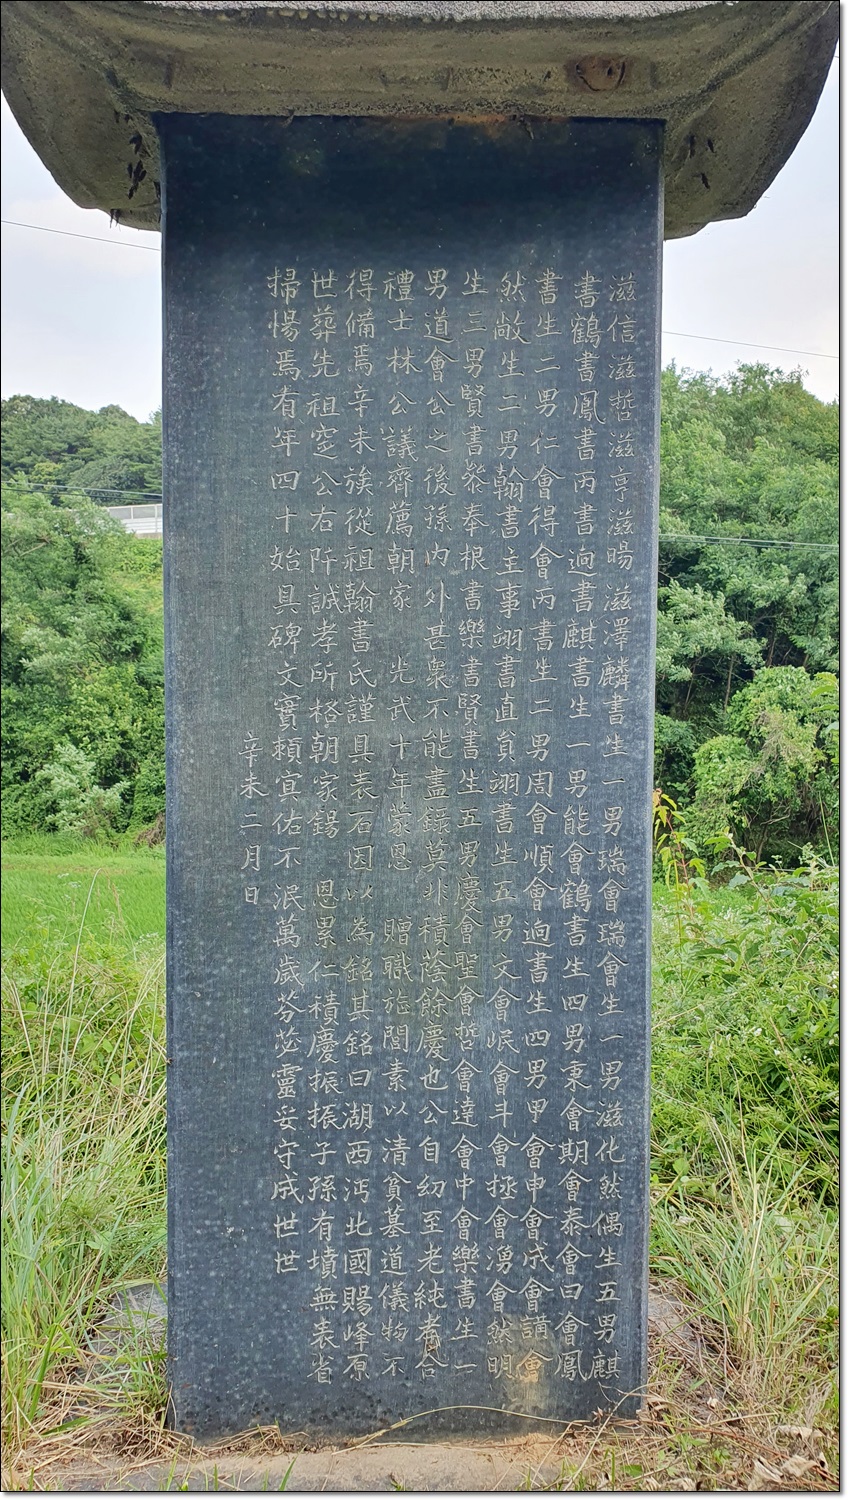 滋信滋哲滋亨滋暘滋澤麟書生一男瑞會瑞會生一男滋化然偶生五男麒
書鶴書鳳書丙書逈書麒書生一男能會鶴書生四男秉會期會泰會曰會鳳
書生二男仁會得會丙書生二男周會順會逈書生四男甲會申會成會講會
然敞生二男翰書主事翊書直員翊書生五男文會岷會斗會拯會湧會然明
生三男賢書叅奉根書樂書賢書生五男慶會聖會哲會達會中會樂書生一
男道會公之後孫內外甚衆不能盡錄莫非積蔭餘慶也公自幼至老純孝合
禮士林公議齊薦朝家 光武十年蒙恩 贈職旌閭素以清貧墓道儀物不
得備焉辛未族從祖翰書氏謹具表石因以為銘其銘曰湖西沔北國賜峰原
世葬先祖窆公右阡誠孝所格朝家錫 恩累仁積慶振振子孫有墳無表省
掃惕焉有年四十始具碑文實賴冥佑不泯萬歲芬苾靈妥守成世世
辛未二月日